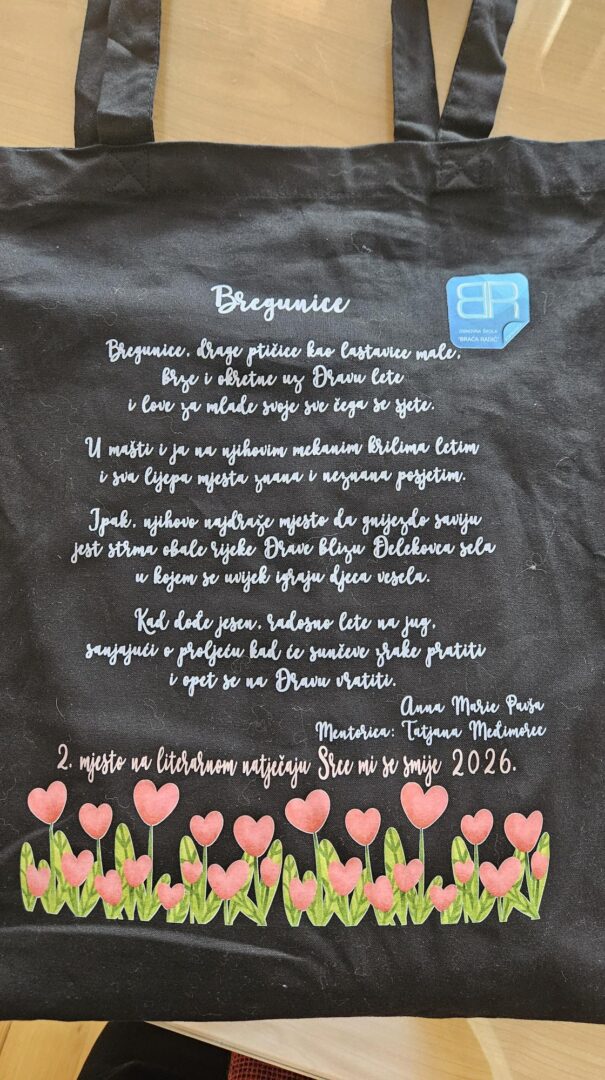 Bregunice
BR
OSNOVNA ŠKOLA
"BRAĆA RADIĆ"
Bregunice, drage ptičice kao lastavice male,
brze i okretne uz Dravu lete
i love za mlade svoje sve čega se sjete.
U mašti i ja na njihovim mekanim krilima letim
i sva lijepa mjesta znana i neznana posjetim.
Ipak, njihovo najdraže mjesto da gnijezdo saviju
jest strma obale rijeke Drave blizu Đelekovca sela
u kojem se uvijek igraju djeca vesela.
Kad dođe jesen, radosno lete na jug,
sanjajući o proljeću kad će sunčeve zrake pratiti
i opet se na Dravu vratiti.
Anna Marie Pavša
Mentorica: Tatjana Međimorec
2. mjesto na literarnom natječaju Srce mi se smije 2026.